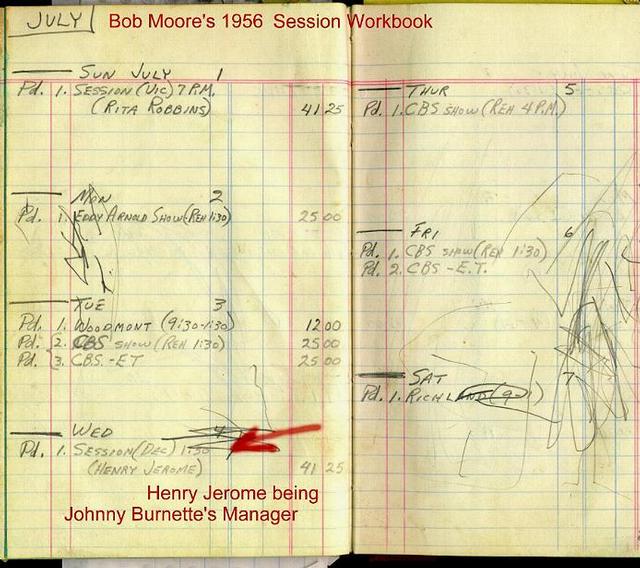 JULY
Bob Moore's 1956 Session Workbook
SUN JULY 1
Pd. 1. SESSION (VIC) 7 P.M.
(RITA ROBBINS) 41 25
MON 2
Pd. 1. EDDY ARNOLD SHOW (REH 1:30) 25 00
TUE 3
Pd. 1. WOODMONT (9:30-1:30) 12 00
Pd. 2. CBS SHOW (REH 1:30) 25 00
Pd. 3. CBS-ET 25 00
WED 4
Pd. 1. SESSION (DEC) 1:30
(HENRY JEROME) 41 25
Henry Jerome being
Johnny Burnette's Manager
THUR 5
Pd. 1. CBS SHOW (REH 4 P.M.)
FRI 6
Pd. 1. CBS SHOW (REH 1:30)
Pd. 2. CBS-E.T.
SAT 7
Pd. 1. RICHLAND (9-1)